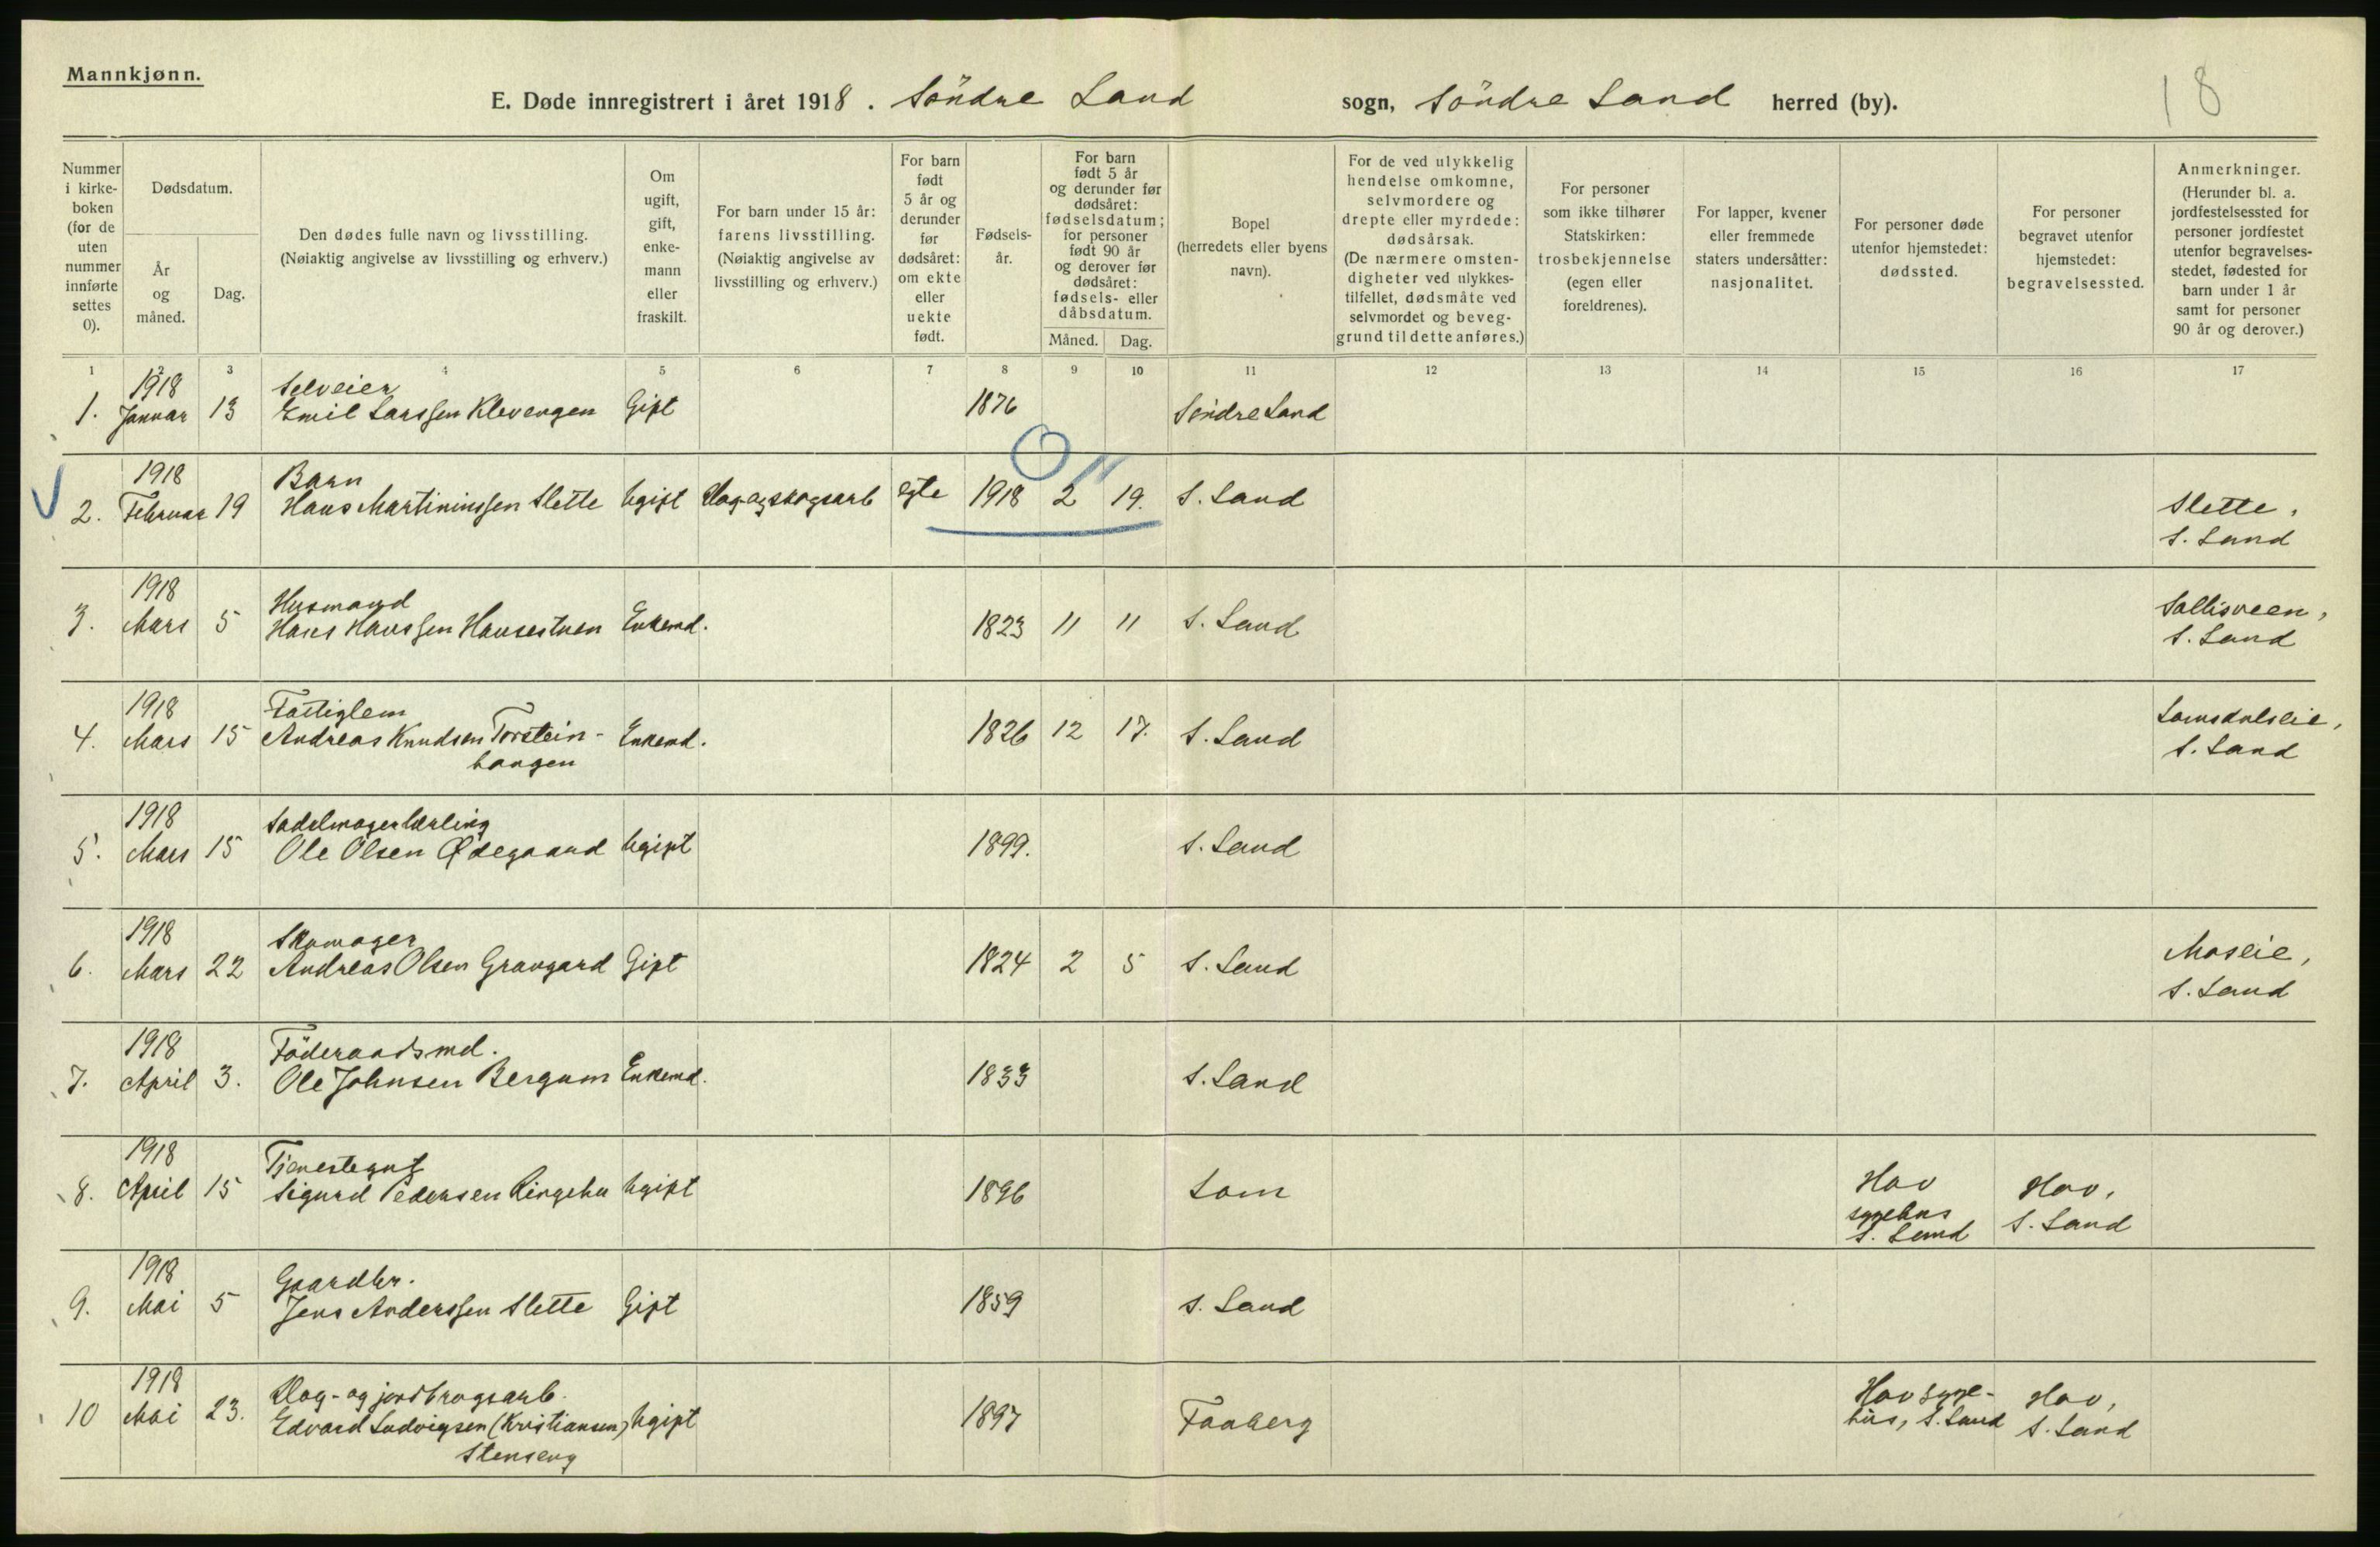 Mannkjønn.
18
E. Døde innregistrert i året 1918. Söndre Land sogn, Söndre Land herred (by).
Nummer i kirkeboken (for de uten nummer innførte settes 0).
Dødsdatum.
År og måned.
Dag.
Den dødes fulle navn og livsstilling. (Nøiaktig angivelse av livsstilling og erhverv.)
Om ugift, gift, enkemann eller fraskilt.
For barn under 15 år: farens livsstilling. (Nøiaktig angivelse av livsstilling og erhverv.)
For barn født 5 år og derunder før dødsåret: om ekte eller uekte født.
Fødselsår.
For barn født 5 år og derunder før dødsåret: fødselsdatum; for personer født 90 år og derover før dødsåret: fødsels- eller dåbsdatum.
Måned. Dag.
Bopel (herredets eller byens navn).
For de ved ulykkelig hendelse omkomne, selvmordere og drepte eller myrdede: dødsårsak. (De nærmere omstendigheter ved ulykkestilfellet, dødsmåte ved selvmordet og beveggrund til dette anføres.)
For personer som ikke tilhører Statskirken: trosbekjennelse (egen eller foreldrenes).
For lapper, kvener eller fremmede staters undersåtter: nasjonalitet.
For personer døde utenfor hjemstedet: dødssted.
For personer begravet utenfor hjemstedet: begravelsessted.
Anmerkninger. (Herunder bl. a. jordfestelsessted for personer jordfestet utenfor begravelsesstedet, fødested for barn under 1 år samt for personer 90 år og derover.)
1 2 3 4 5 6 7 8 9 10 11 12 13 14 15 16 17
1918 Selveier
1. Januar 13 Emil Larssen Klevengen Gift 1876 Söndre Land
1918 Barn
2. Februar 19 Hans Martininssen Slette Ugift Dag-og skogsarb egte 1918 2 19. S. Land Slette,
S. Land
1918 Husmand
3. Mars 5 Hans Hanssen Hansestuen Enkemd. 1823 11 11 S. Land Sollisveen,
S. Land
1918 Fattiglem
4. Mars 15 Andreas Knudsen Torstein- Enkemd. 1826 12 17. S. Land Lomsdalseie,
haugen S. Land
1918 Sadelmagerlærling
5. Mars 15 Ole Olsen Ødegaard Ugift 1899. S. Land
1918 Skomager
6. Mars 22 Andreas Olsen Grangard Gift 1824 2 5 S. Land Moseie,
S. Land
1918 Föderaadsmd.
7. April 3. Ole Johnsen Bergum Enkemd. 1833 S. Land
1918 Tjenestegut
8. April 15 Sigurd Pedersen Ringehu Ugift 1896 Lom Hov sygehus S. Land Hov, S. Land
1918 Gaardbr.
9. Mai 5 Jens Anderssen Slette Gift 1859 S. Land
1918 Dag- og jordbrugsarb.
10 Mai 23. Edvard Ludvigsen (Kristiansen) Ugift 1897 Faaberg Hov syge- hus, S. Land Hov, S. Land
Stenseng